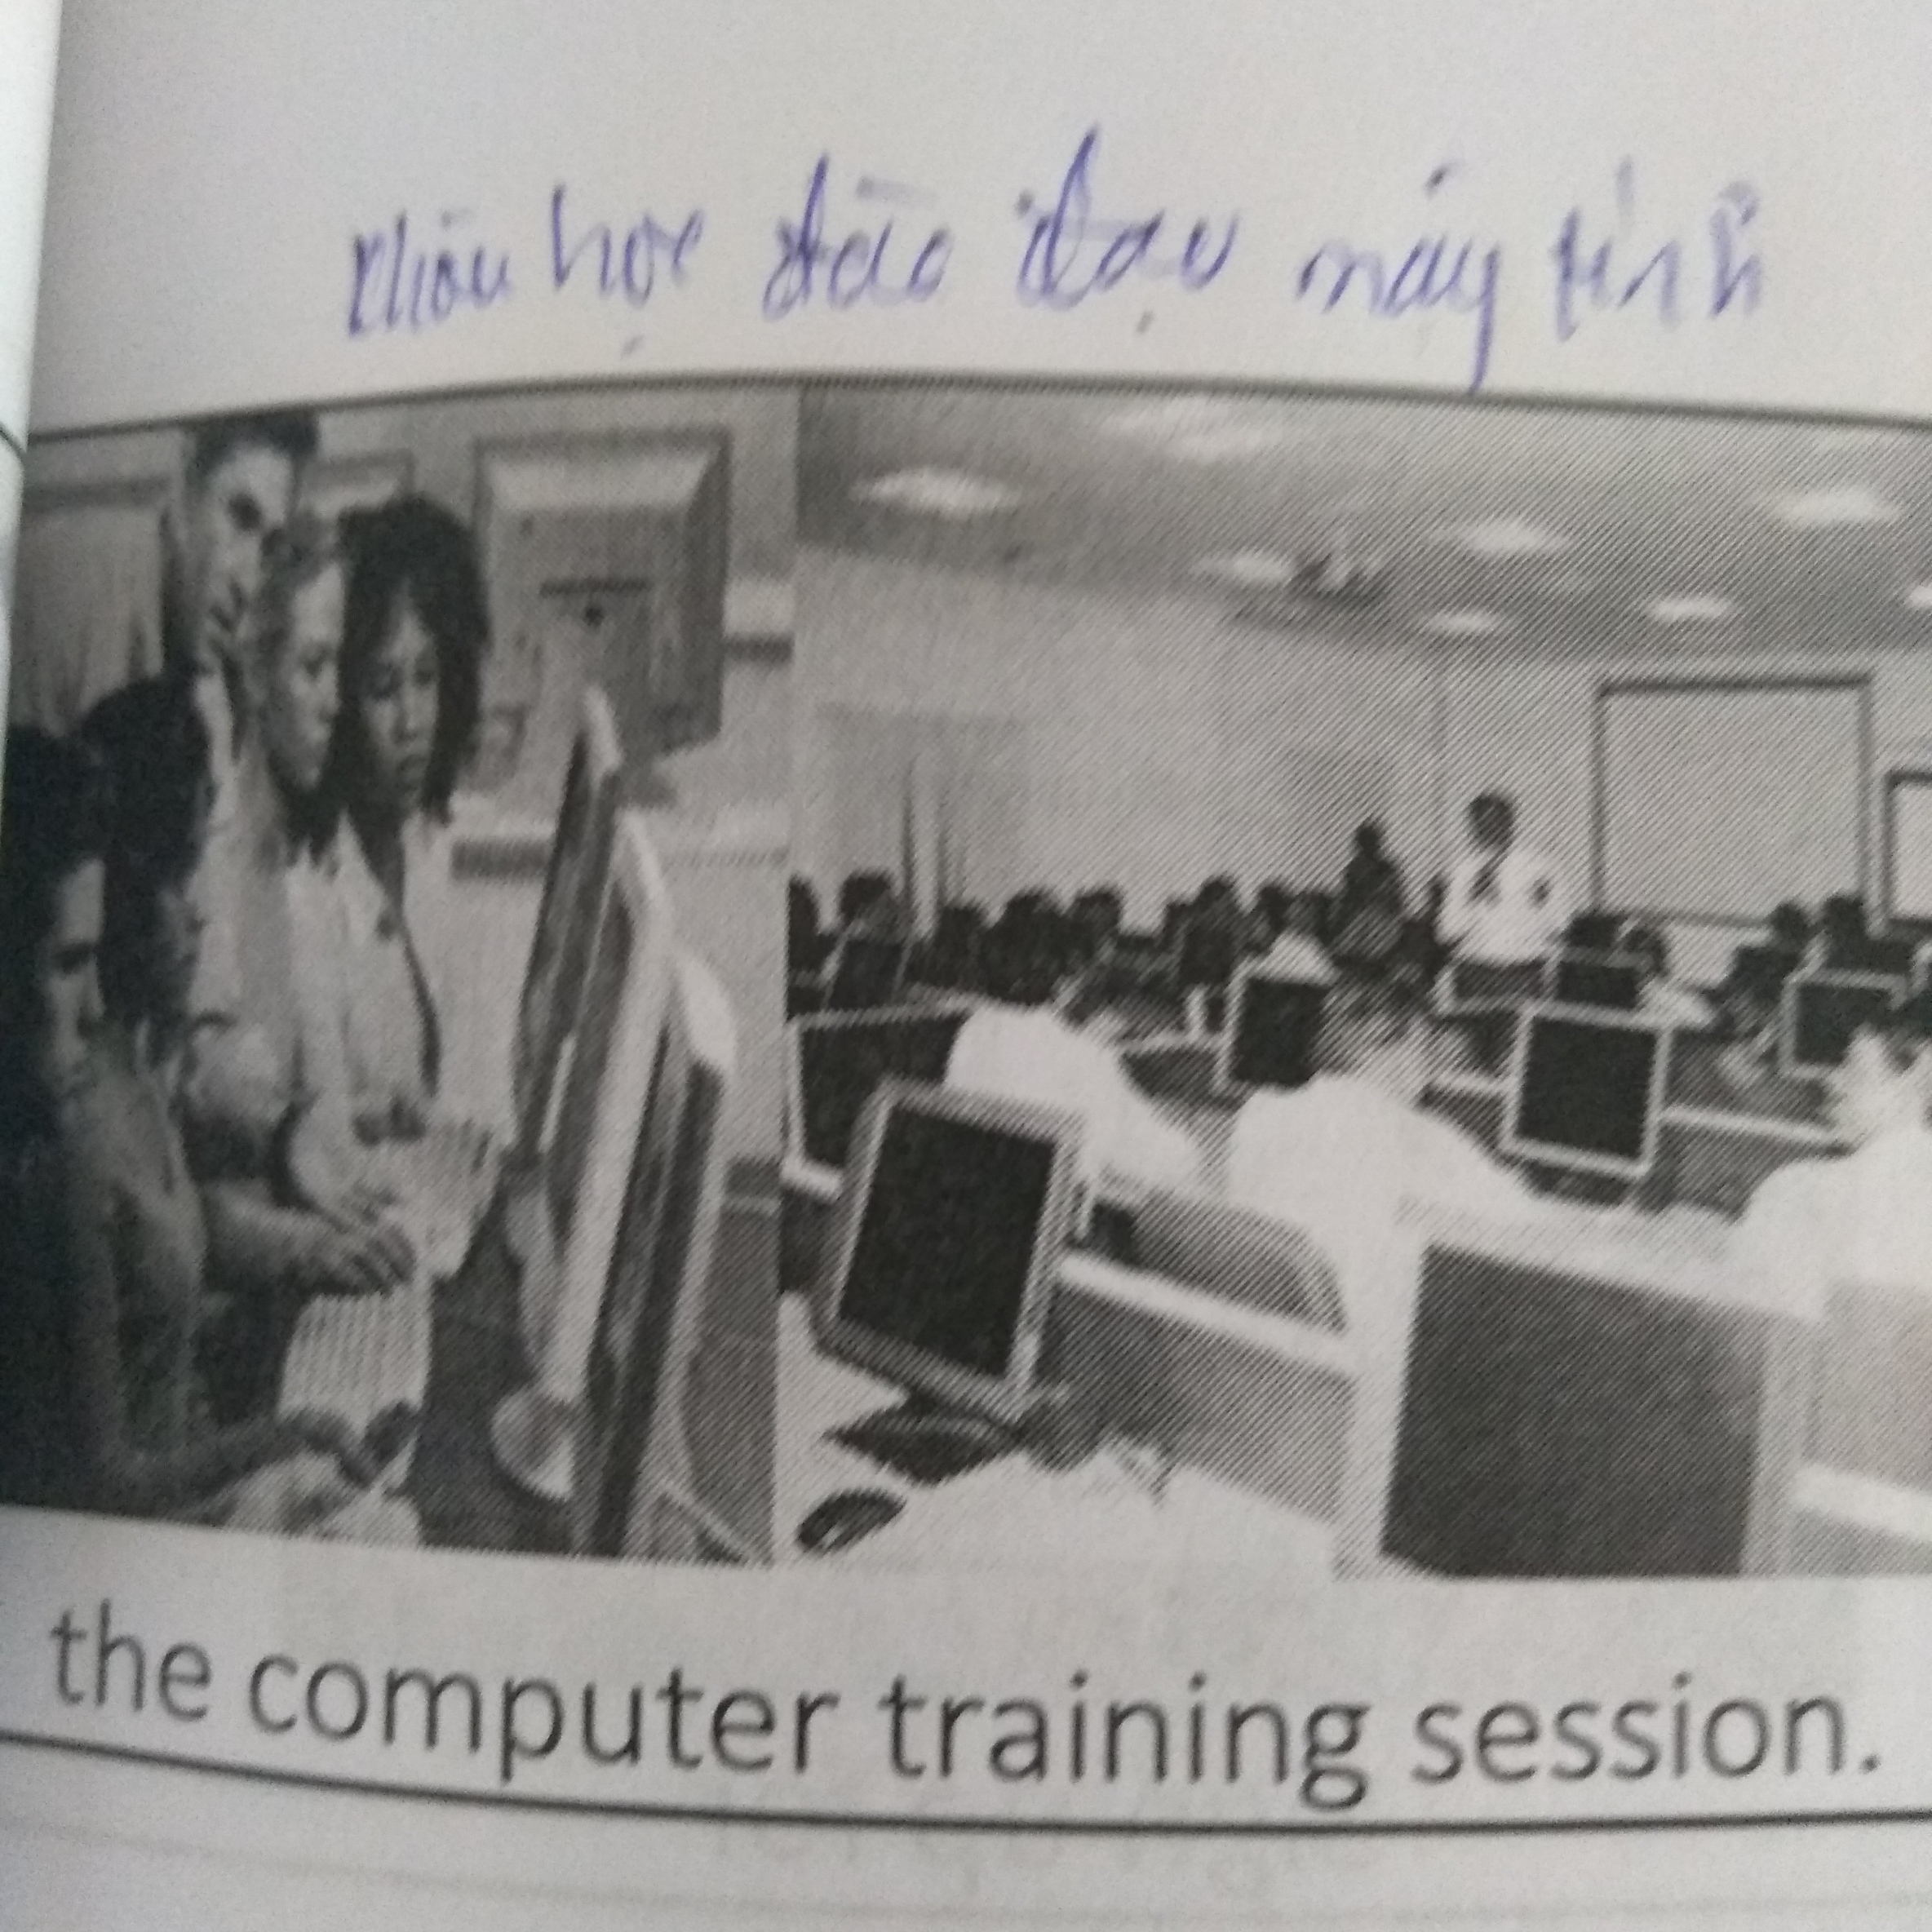 học đào đạo máy tính
the computer training session.